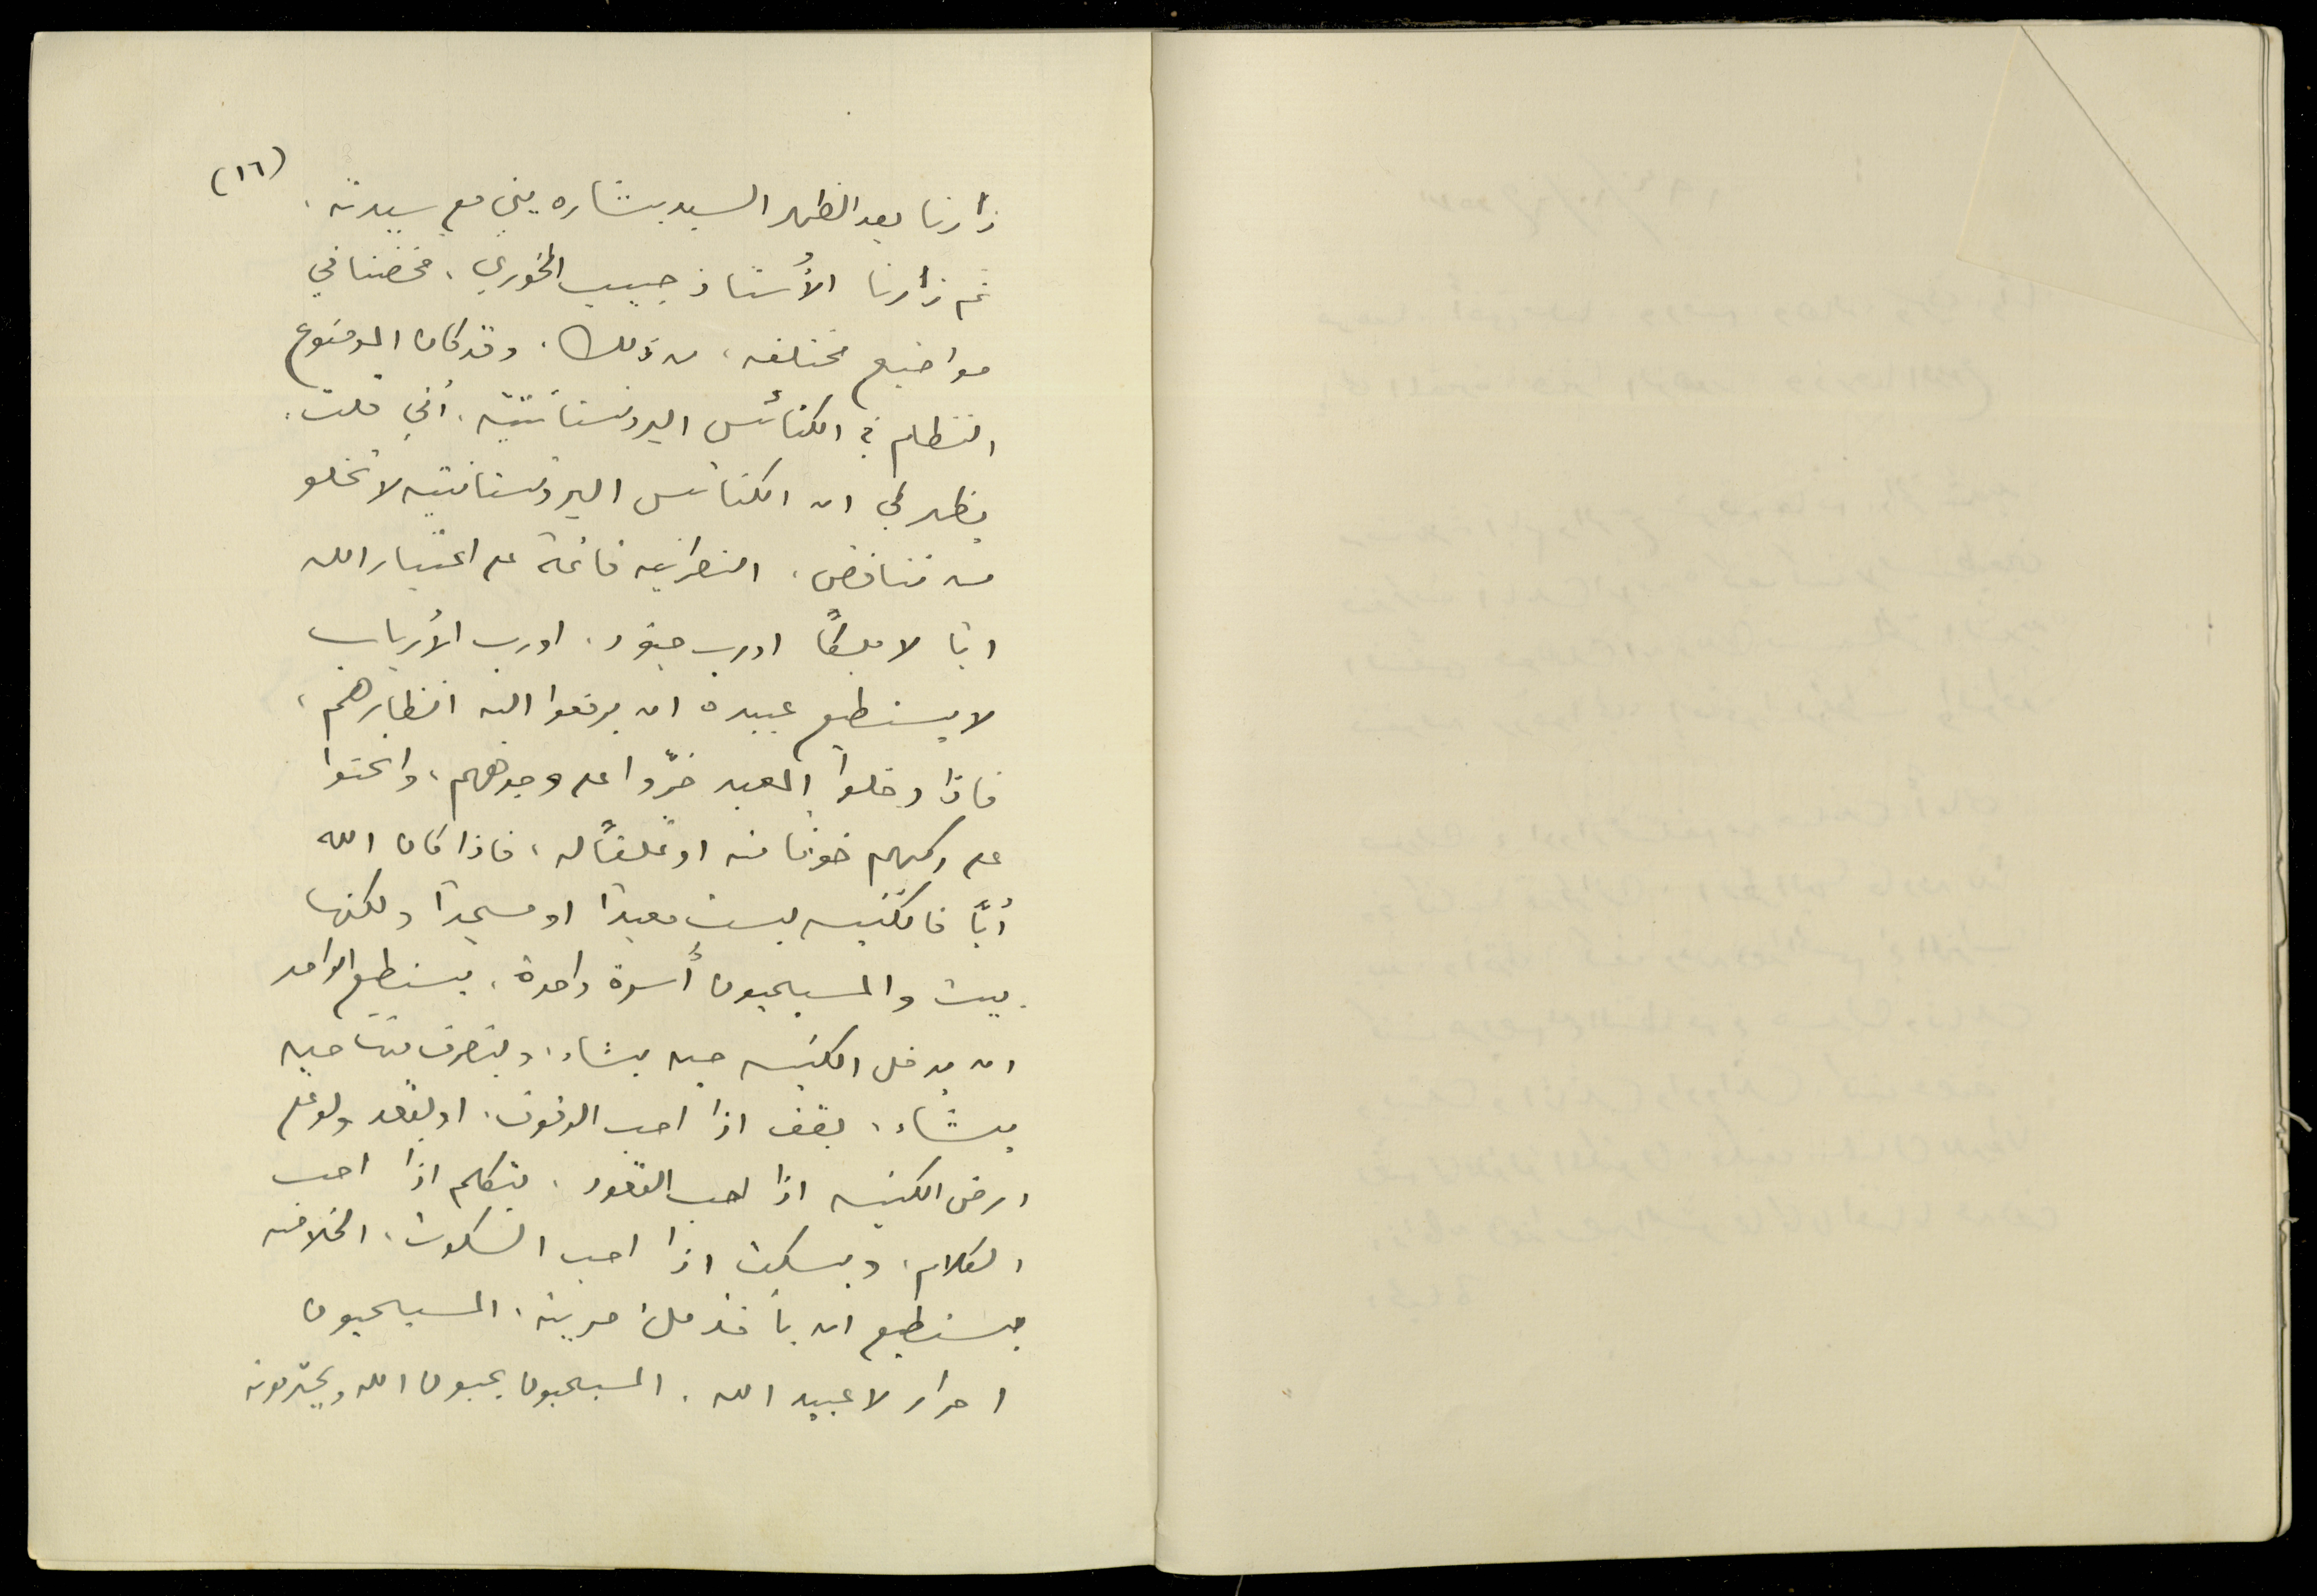 (١٦)
زارنا بعد الظهر السيد بشاره يني مع سيدته.
ثم زارنا الأستاذ حبيب الخوري، فخضنا في
مواضيع مختلفه، من ذلك، وقد كان الموضوع
النظام في الكنائس البروتستانتيه، أني قلت:
يظهر لي ان الكنائس البروتستانتيه لا تخلو
من تناقض، النصرانيه قائمة على اعتبار الله
ابًا لا ملكًا او رب جنود، او رب الأرباب
لا يستطيع عبيده ان يرفعوا اليه انظارهم،
فاذا دخلوا المعبد خرّوا على وجوههم، وانحنوا
على ركبهم خوفًا منه او تملقًا له، فاذا كان الله
أبًا فالكنيسه ليست معبدًا او مسجدًا ولكنها
بيت والمسيحيون أسرة واحدة، يستطيع الواحد
ان يدخل الكنيسه حين يشاء، ويتصرف فيها حين
يشاء، يقف اذا احب الوقوف، او يقعد ولو على
ارض الكنيسه اذا احب القعود، يتكلم اذا احب
الكلام، ويسكت اذا احب السكوت، الخلاصه
يستطيع ان يأخذ ملء حريته، المسيحيون
احرار لا عبيد الله. المسيحيون يحبون الله ويحترمونه